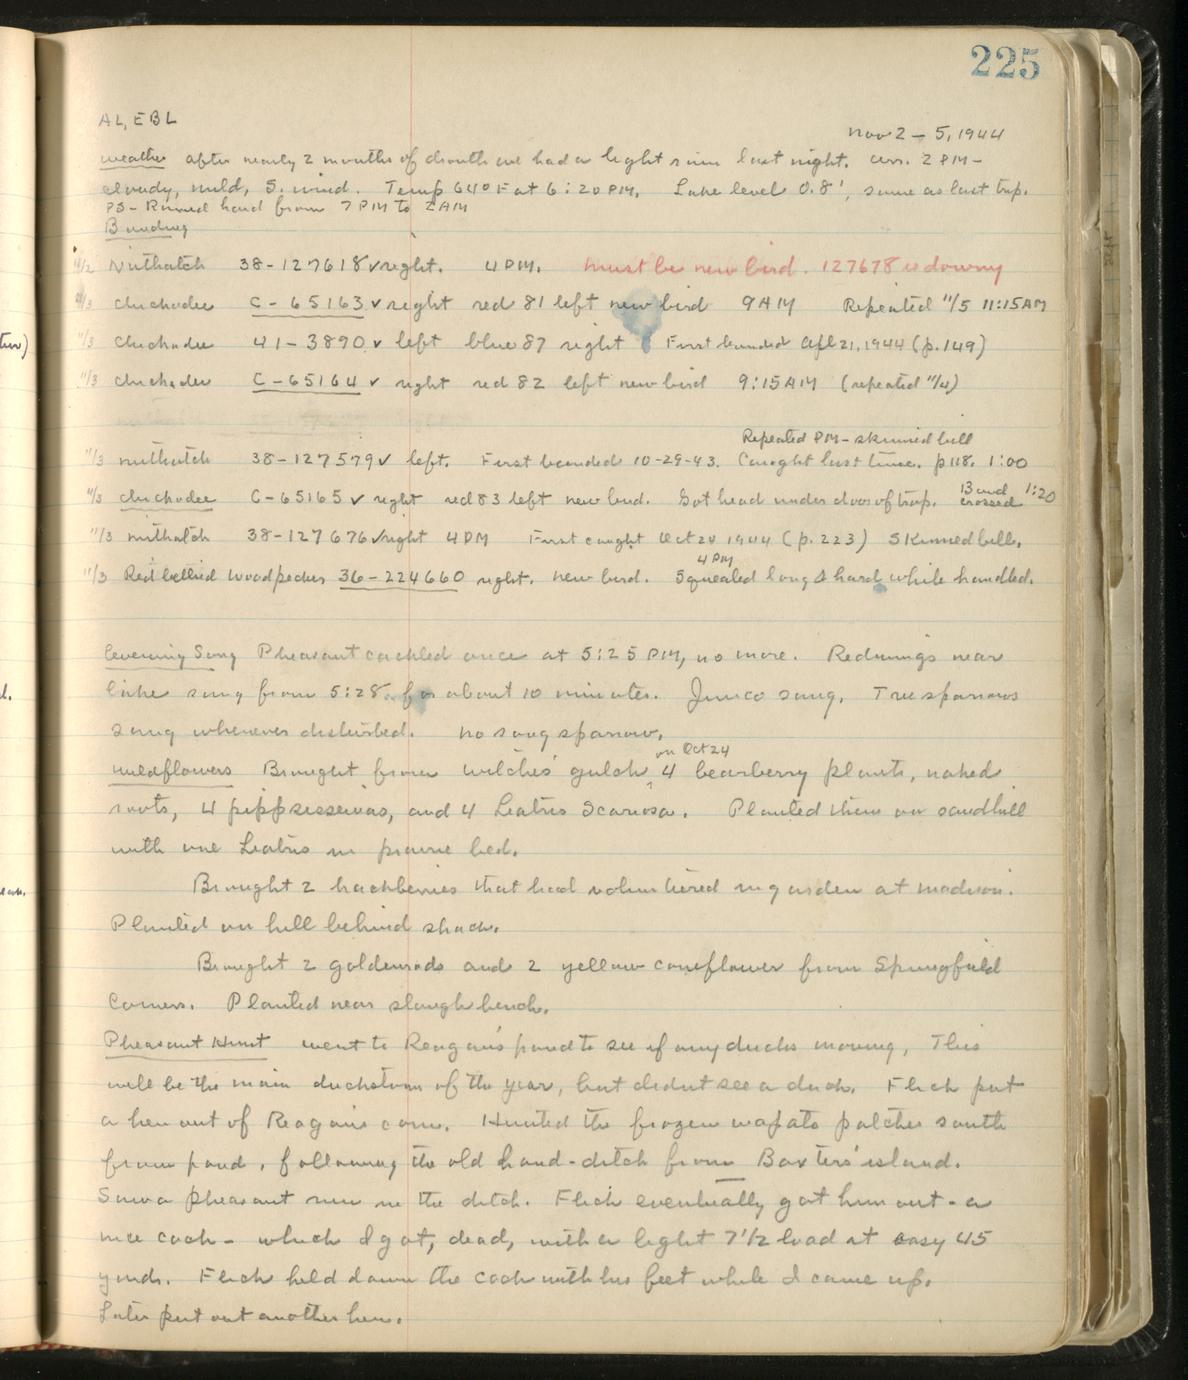 225
AL, EBL
Nov 2 - 5, 1944
Weather after nearly 2 months of drouth we had a light rain last night. arr. 2 PM -
cloudy, mild, S. wind. Temp 64° F at 6:20 PM. Lake level 0.8', same as last trip.
PS - Rained hard from 7 PM to 2 AM
Banding
11/2 Nuthatch 38-127618 ✓ right. 4 PM. must be new bird. 127678 is downy
11/3 Chickadee C-65163 ✓ right red 81 left new bird 9 AM Repeated 11/5 11:15 AM
11/3 Chickadee 41-3890 ✓ left blue 87 right First banded Apl 21, 1944 (p. 149)
11/3 Chickadee C-65164 ✓ right red 82 left new bird 9:15 AM (repeated 11/4)
Repeated PM - skinned bill
11/3 nuthatch 38-127579 ✓ left. First banded 10-29-43. Caught last time. p 118. 1:00
11/3 chickadee C-65165 ✓ right red 83 left new bird. Got head under door of trap. Band crossed 1:20
11/3 nuthatch 38-127676 ✓ right 4 PM First caught Oct 24 1944 (p. 223) Skinned bill.
4 PM
11/3 Red bellied Woodpecker 36-224660 right. new bird. Squealed long & hard while handled.
Evening Song Pheasant cackled once at 5:25 PM, no more. Redwings near
lake sang from 5:28 for about 10 minutes. Junco sang. Tree sparrows
sang whenever disturbed. no song sparrow.
on Oct 24
Wildflowers Brought from Wilches' gulch ^ 4 bearberry plants, naked
roots, 4 pippsissewas, and 4 Liatris Scariosa. Planted them on sandhill
with one Liatris in prairie bed.
Brought 2 hackberries that had volunteered in garden at Madison.
Planted on hill behind shack.
Brought 2 goldenrods and 2 yellow coneflower from Springfield
Corners. Planted near slough bench.
Pheasant Hunt went to Reagan's pond to see if any ducks moving, This
will be the main duckstorm of the year, but didnt see a duck. Flick put
a hen out of Reagan's corn. Hunted the frozen wapato patches south
from pond, following the old hand-ditch from Baxters' island.
Saw a pheasant run in the ditch. Flick eventually got him out - a
nice cock - which I got, dead, with a light 7 1/2 load at easy 45
yards. Flick held down the cock with his feet while I came up.
Later put out another hen.